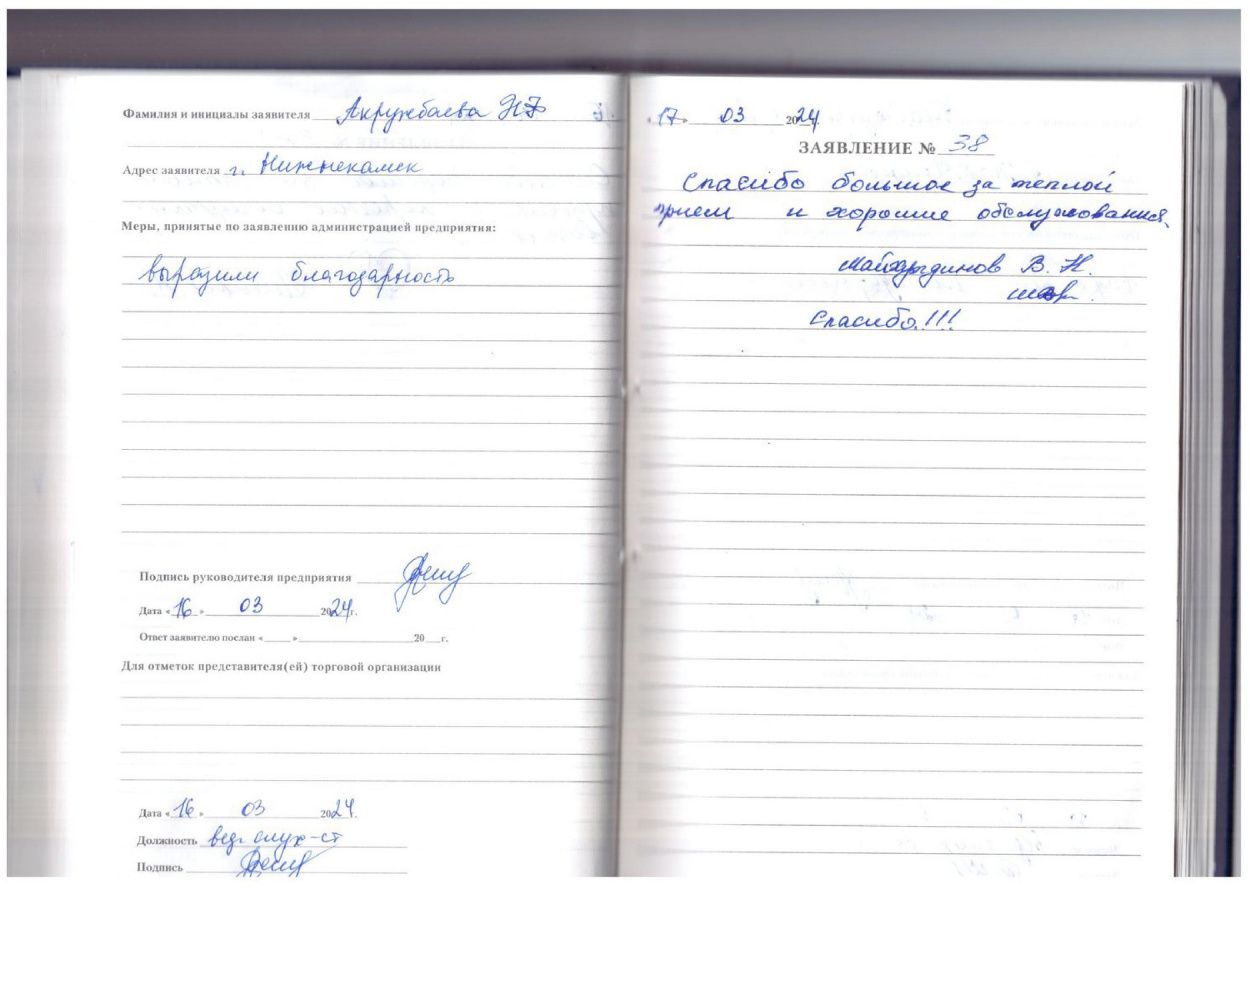 Фамилия и инициалы заявителя Акружбаева Н.Г
Адрес заявителя г. Нижнекамск
Меры, принятые по заявлению администрацией предприятия:
выразили благодарность
Подпись руководителя предприятия
Дата «16» 03 2024г.
Ответ заявителю послан «    »            20   г.
Для отметок представителя(ей) торговой организации
Дата «16» 03 2024.
Должность вед. слух-ст
Подпись
«17» 03 2024г.
ЗАЯВЛЕНИЕ № 38
Спасибо большое за теплой
прием и хорошие обслуживания.
В. Н.
Спасибо!!!